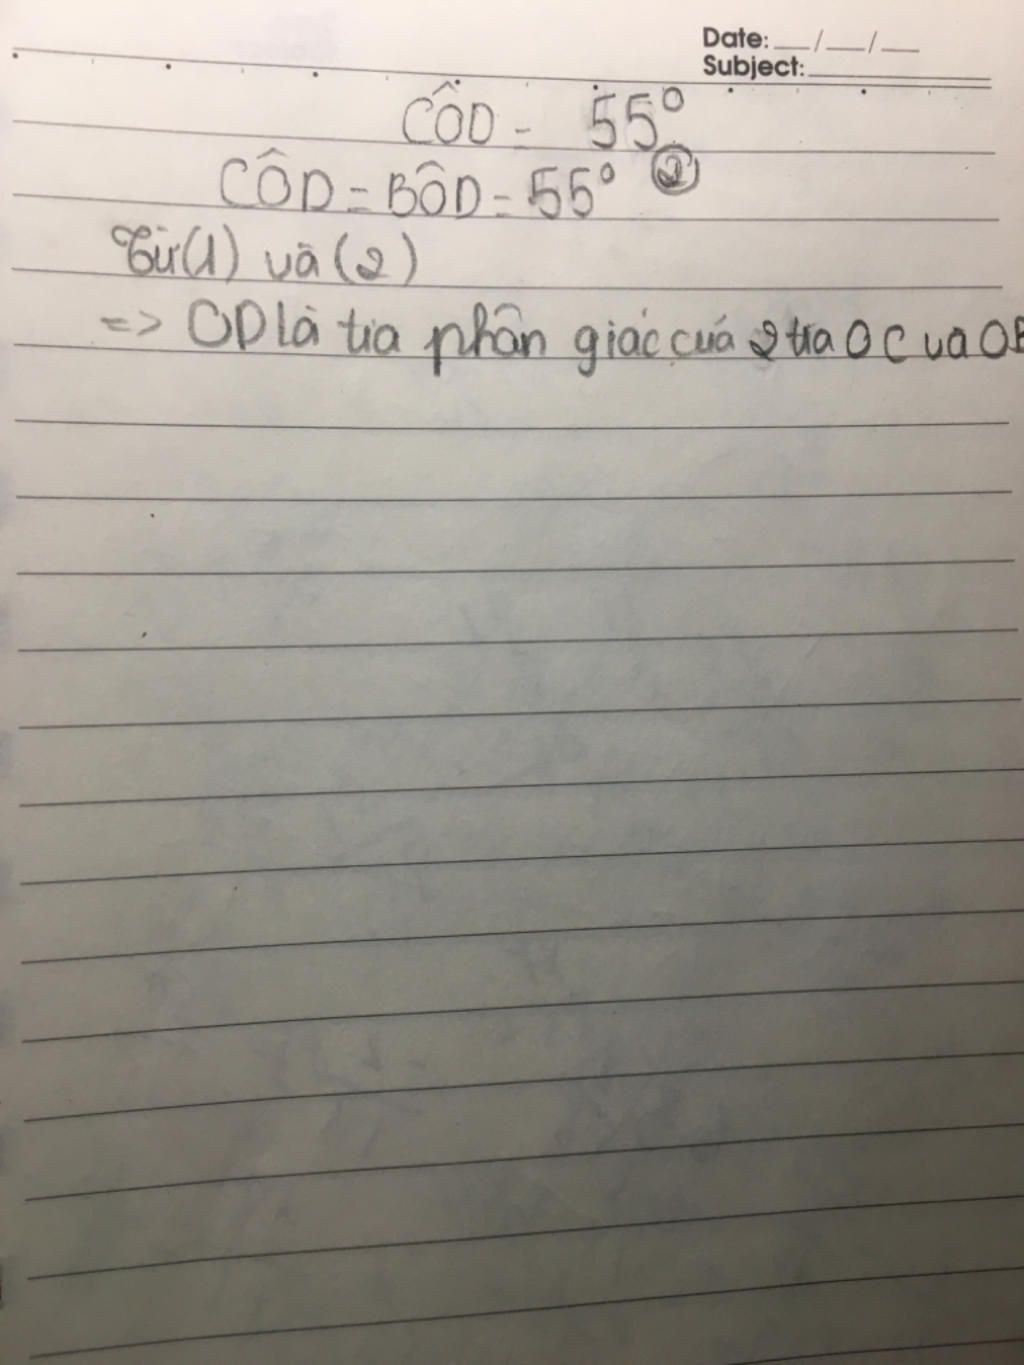 Date: __/__/__
Subject:
CÔD = 55°
CÔD = BÔD = 55° (2)
Từ (1) và (2)
=> OD là tia phân giác của 2 tia OC và OB